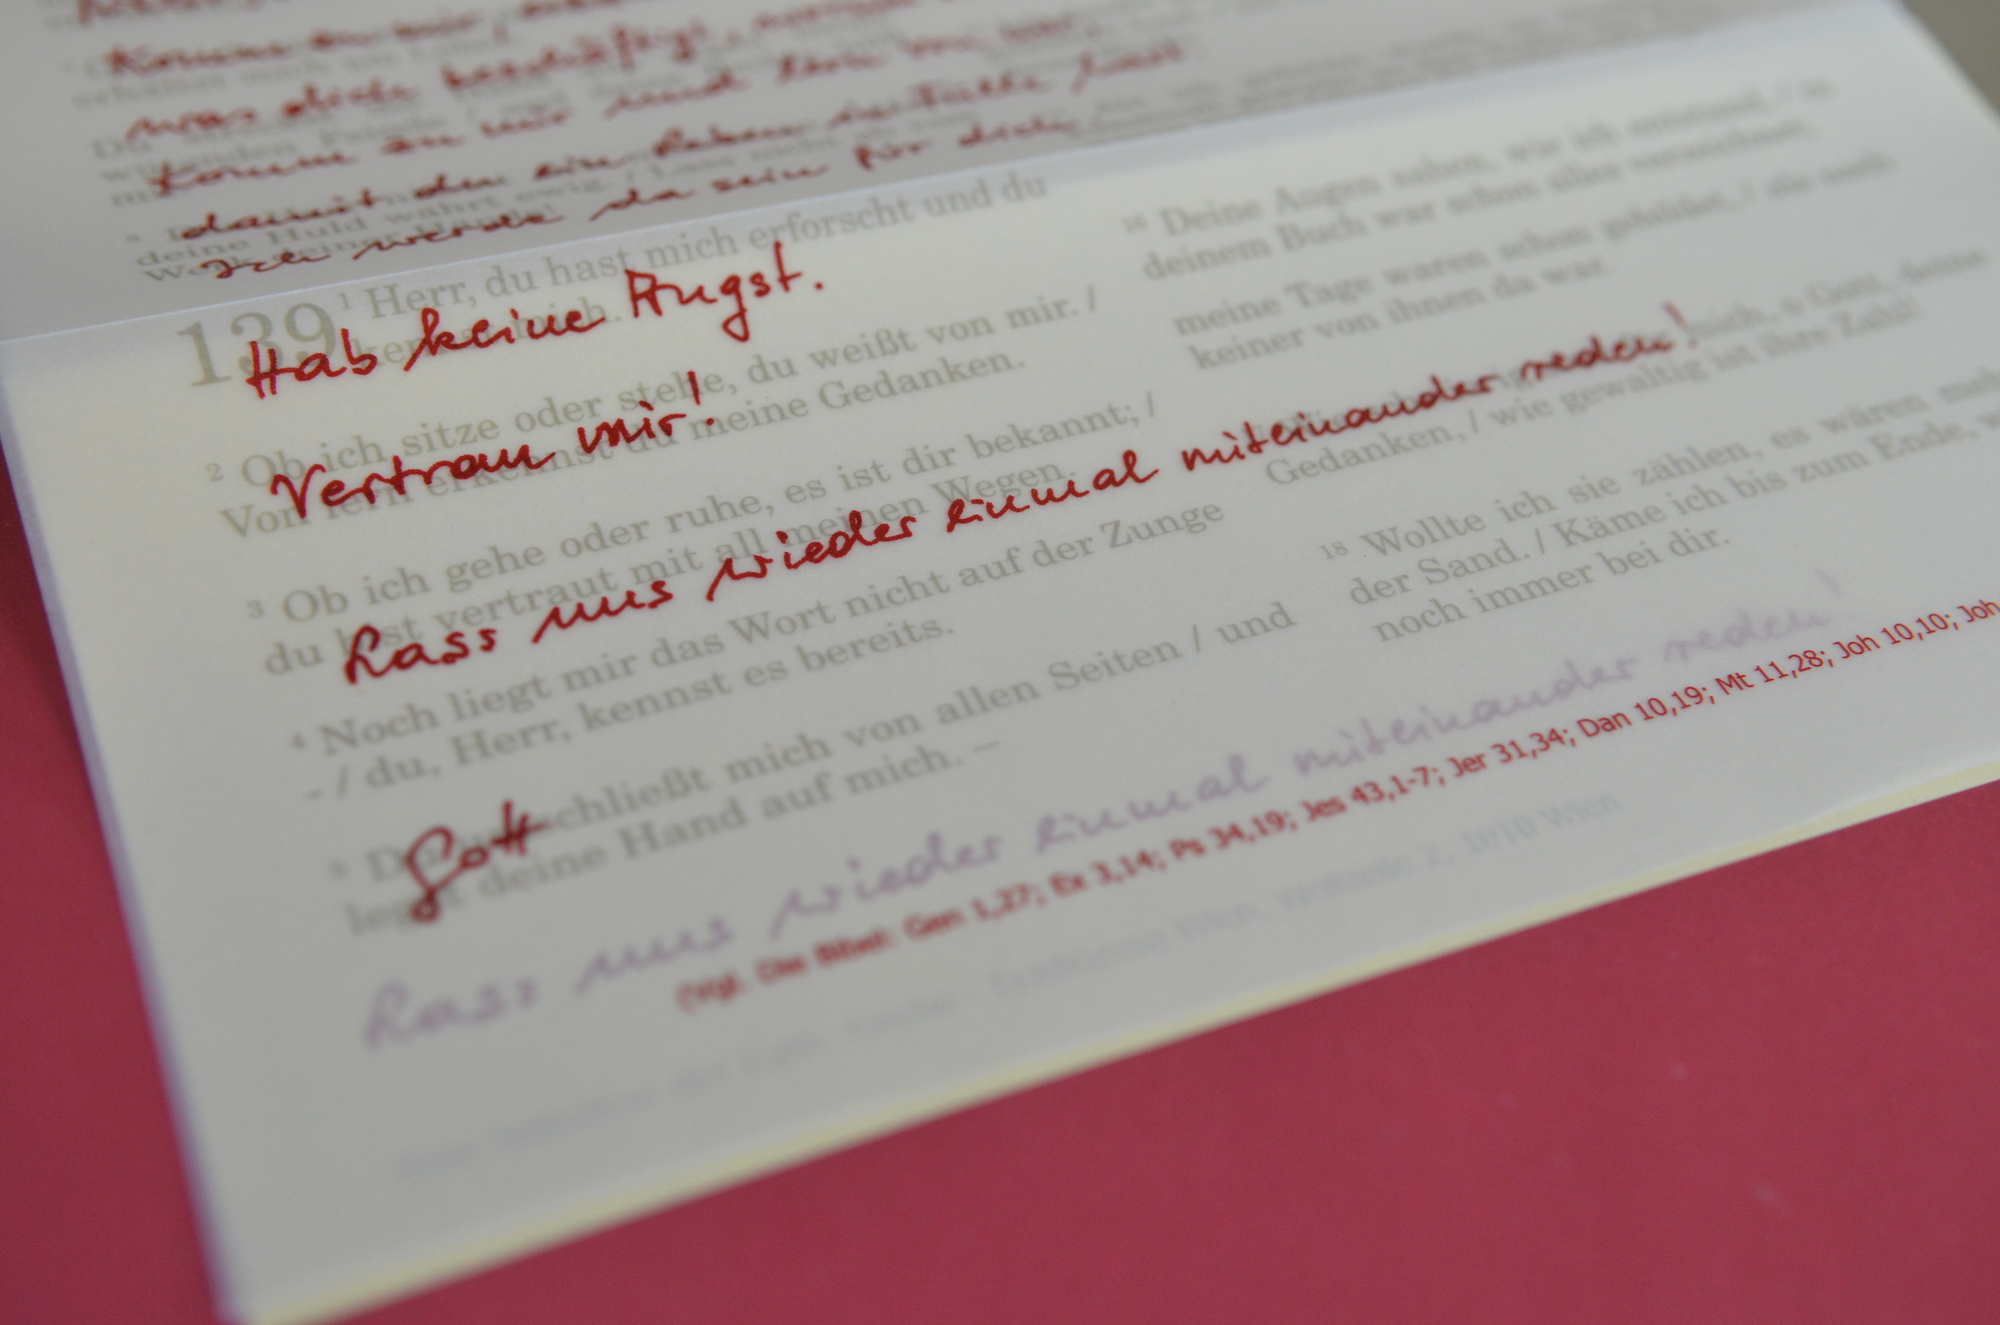 was dich beschäftigt,
Komm zu mir und
damit du ein Leben in Fülle hast.
Ich werde da sein für dich.
Hab keine Angst.
Vertrau mir!
Lass uns wieder einmal miteinander reden!
Gott
139 1 Herr, du hast mich erforscht und du
2 Ob ich sitze oder stehe, du weißt von mir. /
Von fern erkennst du meine Gedanken.
3 Ob ich gehe oder ruhe, es ist dir bekannt; /
du bist vertraut mit all meinen Wegen.
4 Noch liegt mir das Wort nicht auf der Zunge
- / du, Herr, kennst es bereits.
5 Du umschließt mich von allen Seiten / und
legst deine Hand auf mich. –
16 Deine Augen sahen, wie ich entstand, / in
deinem Buch war schon alles verzeichnet;
meine Tage waren schon gebildet, / als noch
keiner von ihnen da war.
mich, o Gott, deine
Gedanken, / wie gewaltig ist ihre Zahl!
18 Wollte ich sie zählen, es wären mehr
der Sand. / Käme ich bis zum Ende,
noch immer bei dir.
Lass uns wieder einmal miteinander reden!
(Vgl. Die Bibel: Gen 1,27; Ex 3,14; Ps 34,19; Jes 43,1-7; Jer 31,34; Dan 10,19; Mt 11,28; Joh 10,10; Joh
2, 1010 Wien